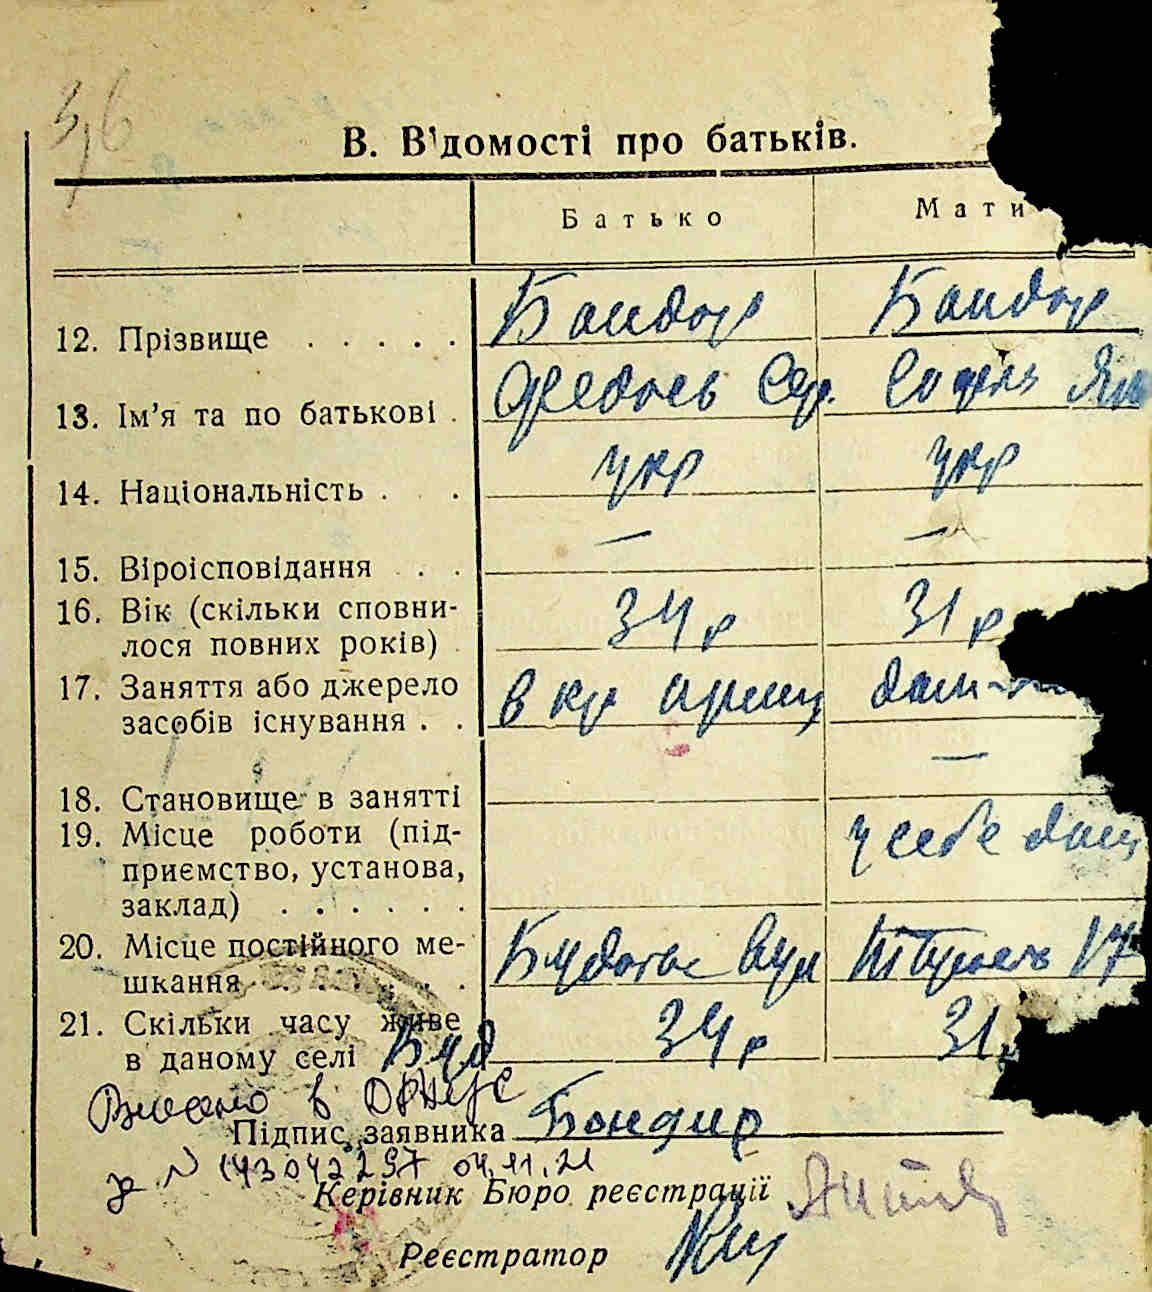 3/6
В. В'домості про батьків.
Батько Мати
12. Прізвище . . . . . Бондар Бондар
13. Ім'я та по батькові . Федось Сер. Софья
14. Національність . . . укр укр
15. Віроісповідання . . — —
16. Вік (скільки сповни-
лося повних років) . 34 р 31 р
17. Заняття або джерело
засобів існування . . в кр армии дом
—
18. Становище в занятті
19. Місце роботи (під-
приємство, установа,
заклад) . . . . . . у себе дома
20. Місце постійного ме-
шкання . . . . . . вул 17
21. Скільки часу живе
в даному селі Буд 34 р 31
Внесено в ДРАЦС
Підпис заявника Бондар
за N 143042297 04.11.21
Керівник Бюро реєстрації
Реєстратор